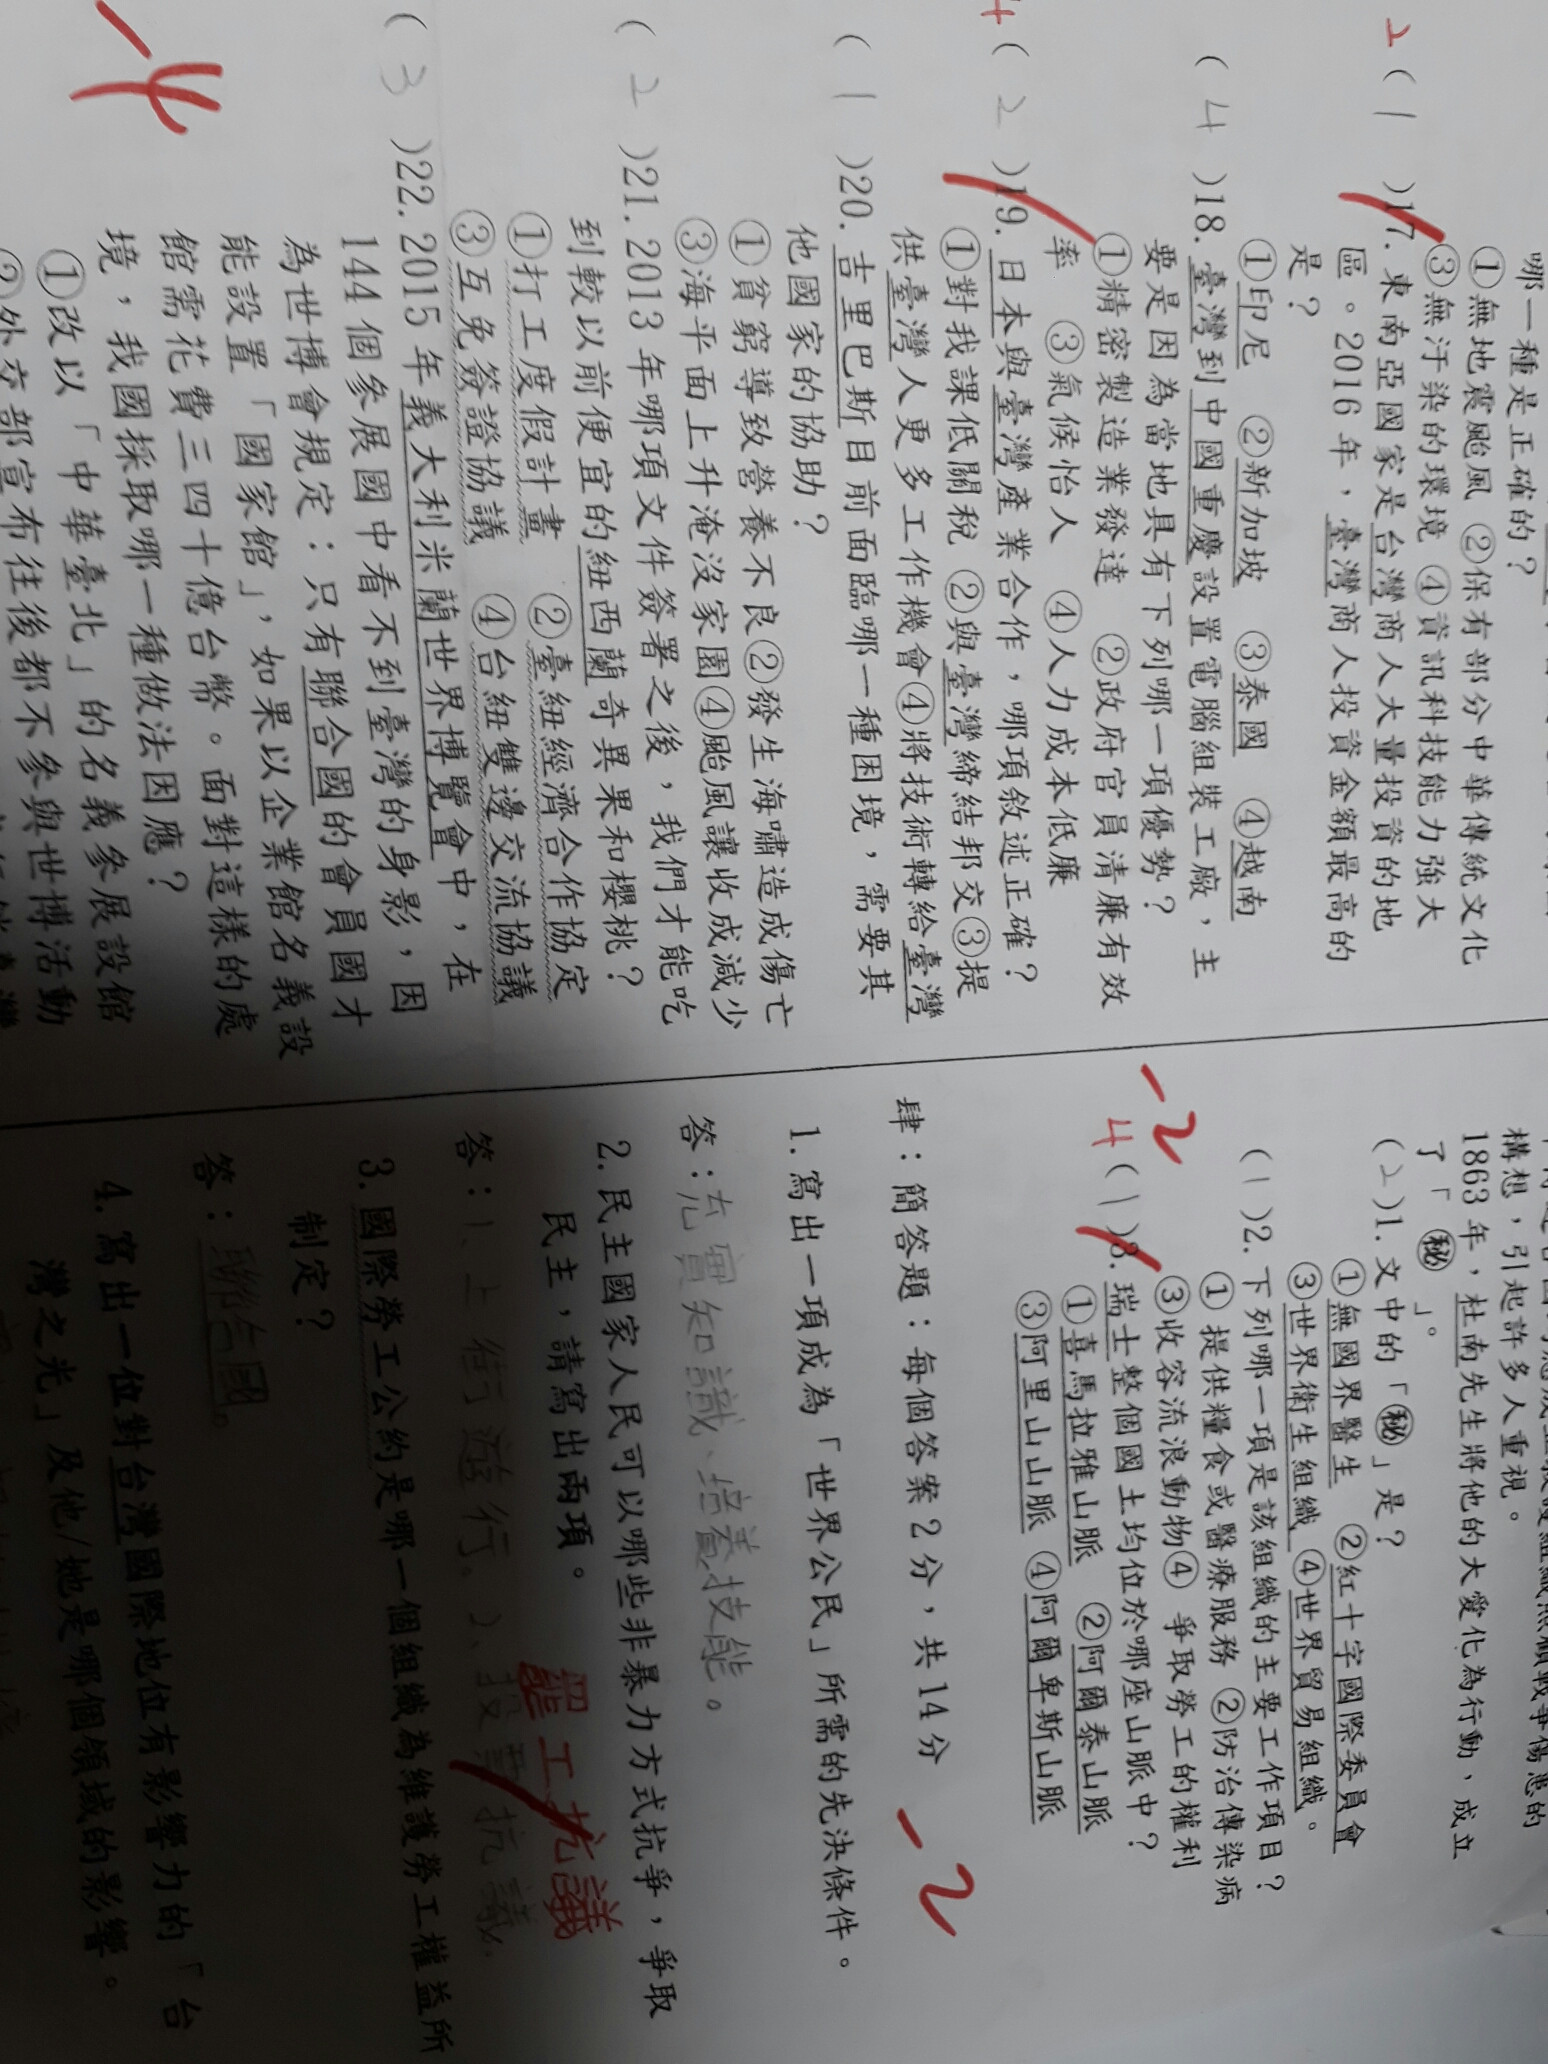 哪一種是正確的？
①無地震颱風 ②保有部分中華傳統文化
③無汙染的環境 ④資訊科技能力強大
2 ( 1 )17. 東南亞國家是台灣商人大量投資的地
區。2016 年，臺灣商人投資金額最高的
是？
①印尼 ②新加坡 ③泰國 ④越南
( 4 )18. 臺灣到中國重慶設置電腦組裝工廠，主
要是因為當地具有下列哪一項優勢？
①精密製造業發達 ②政府官員清廉有效
率 ③氣候怡人 ④人力成本低廉
4 ( 2 )19. 日本與臺灣產業合作，哪項敘述正確？
①對我課低關稅 ②與臺灣締結邦交③提
供臺灣人更多工作機會④將技術轉給臺灣
( 1 )20. 吉里巴斯目前面臨哪一種困境，需要其
他國家的協助？
①貧窮導致營養不良②發生海嘯造成傷亡
③海平面上升淹沒家園④颱風讓收成減少
( 2 )21. 2013 年哪項文件簽署之後，我們才能吃
到較以前便宜的紐西蘭奇異果和櫻桃？
①打工度假計畫 ②臺紐經濟合作協定
③互免簽證協議 ④台紐雙邊交流協議
( 3 )22. 2015 年義大利米蘭世界博覽會中，在
144 個參展國中看不到臺灣的身影，因
為世博會規定：只有聯合國的會員國才
能設置「國家館」，如果以企業館名義設
館需花費三四十億台幣。面對這樣的處
境，我國採取哪一種做法因應？
①改以「中華臺北」的名義參展設館
②外交部宣布往後都不參與世博活動
構想，引起許多人重視。
1863 年，杜南先生將他的大愛化為行動，成立
了「㊙」。
( 2 )1. 文中的「㊙」是？
①無國界醫生 ②紅十字國際委員會
③世界衛生組織 ④世界貿易組織。
( 1 )2. 下列哪一項是該組織的主要工作項目？
① 提供糧食或醫療服務 ②防治傳染病
③收容流浪動物④ 爭取勞工的權利
-2
4 ( 1 )3. 瑞士整個國土均位於哪座山脈中？
①喜馬拉雅山脈 ②阿爾泰山脈
③阿里山山脈 ④阿爾卑斯山脈
肆：簡答題：每個答案 2 分，共 14 分
-2
1. 寫出一項成為「世界公民」所需的先決條件。
答：充實知識、培養技能。
2. 民主國家人民可以哪些非暴力方式抗爭，爭取
民主，請寫出兩項。
罷工抗議
答：1、上街遊行.2、投票抗議.
3. 國際勞工公約是哪一個組織為維護勞工權益所
制定？
答：聯合國。
4. 寫出一位對台灣國際地位有影響力的「台
灣之光」及他/她是哪個領域的影響。